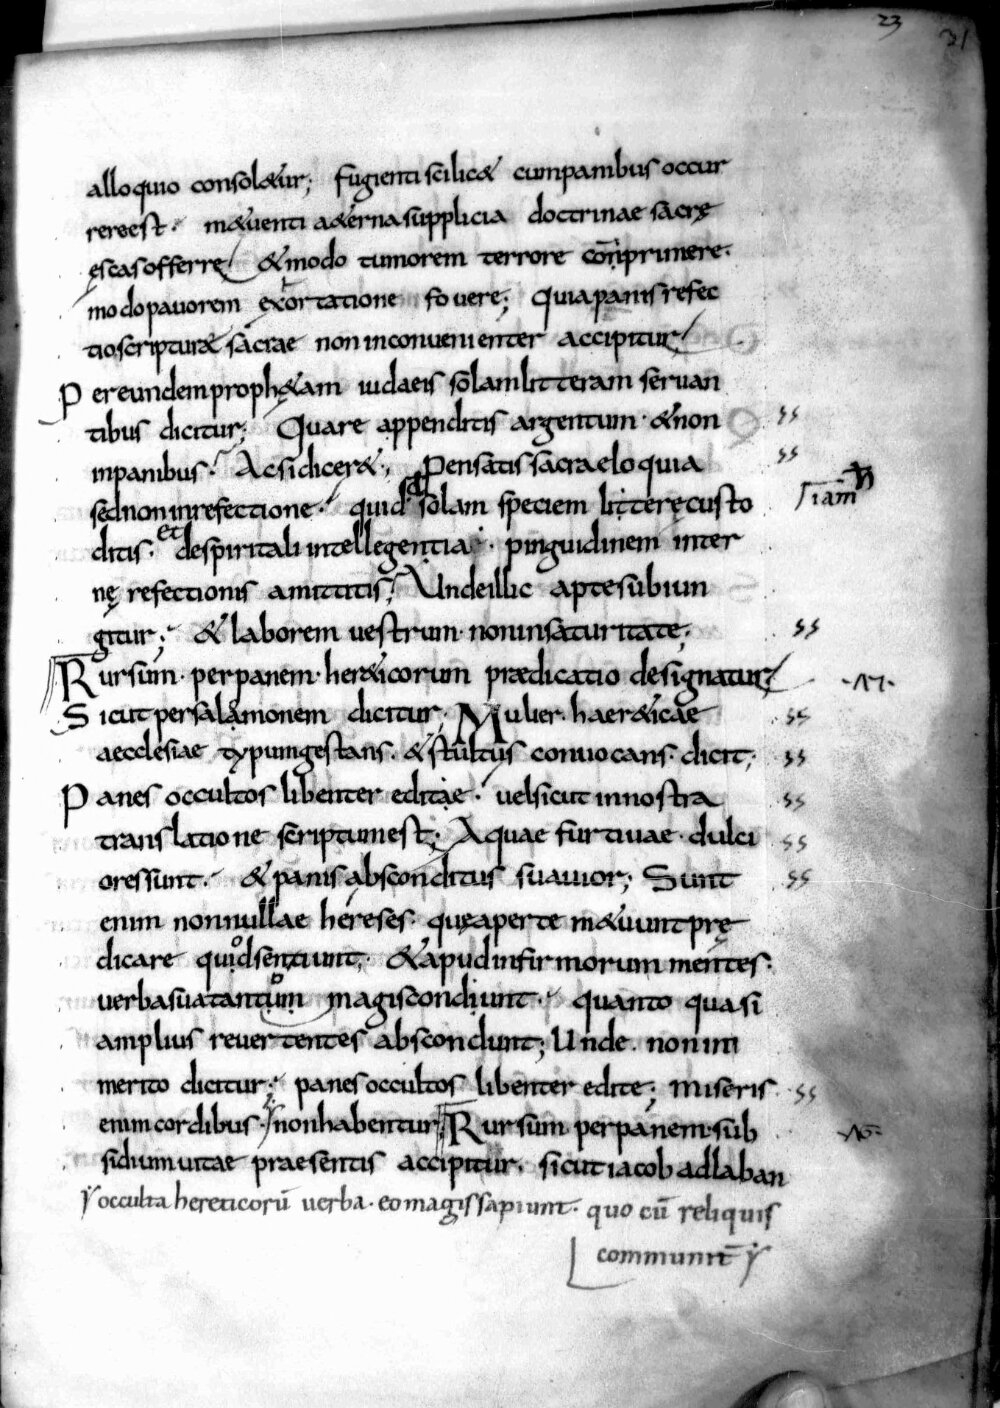 23
31
alloquio consol&ur; fugienti scilic& cum panibus occur
rere est. m&uenti a&erna supplicia doctrinae sacrę
ęscas offerre, & modo tumorem terrore conprimere.
modo pauorem exortatione fouere; Quia panis refec
tio scripturae sacrae non inconuenienter accipitur
Per eundem proph&am iudaeis solam litteram seruan
tibus dicitur; Quare appenditis argentum & non
in panibus. Ac si dicer&; Pensatis sacra eloquia
sed non in refectione. quid solam speciem litterę custo
ditis. et de spiritali intellegentia. pinguidinem inter
nę refectionis amittitis; Unde illic apte subiun
gitur; & laborem uestrum non in saturitate;
Rursum per panem her&icorum praedicatio designatur
Sicut per salamonem dicitur; Mulier haer&icae
aecclesiae typum gestans & stultus conuocans dicit;
Panes occultos libenter editae. uel sicut in nostra
translatione scriptum est; Aquae furtiuae dulci
ores sunt. & panis absconditus suauior; Sunt
enim nonnullae hereses. quę aperte m&uunt prę
dicare quod sentiunt; & apud infirmorum mentes.
uerba sua tantum magis condiunt. quanto quasi
amplius reuertentes abscondunt; Unde non in
merito dicitur; panes occultos libenter edite; miseris
enim cordibus non habentur Rursum per panem sub
sidium uitae praesentis accipitur. sicut iacob ad laban
occulta hereticorū uerba. eo magis sapiunt. quo cū reliquis